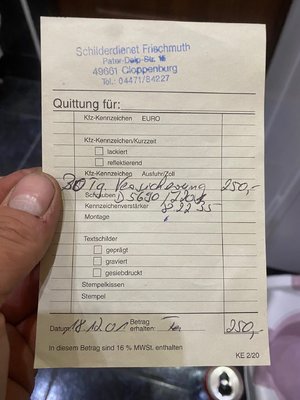 Schilderdienst Friechmuth
Pater-Delp-Str. 15
49661 Cloppenburg
Tel.: 04471/84227
Quittung für:
Kfz-Kennzeichen EURO
Kfz-Kennzeichen/Kurzzeit
lackiert
reflektierend
Kfz-Kennzeichen Ausfuhr/Zoll
30 Tg. Versicherung 250,-
Schrauben
Kennzeichenverstärker
Montage
Textschilder
geprägt
graviert
gesiebdruckt
Stempelkissen
Stempel
Datum: 18.12.01 Betrag erhalten: 250,-
In diesem Betrag sind 16 % MWSt. enthalten
KE 2/20